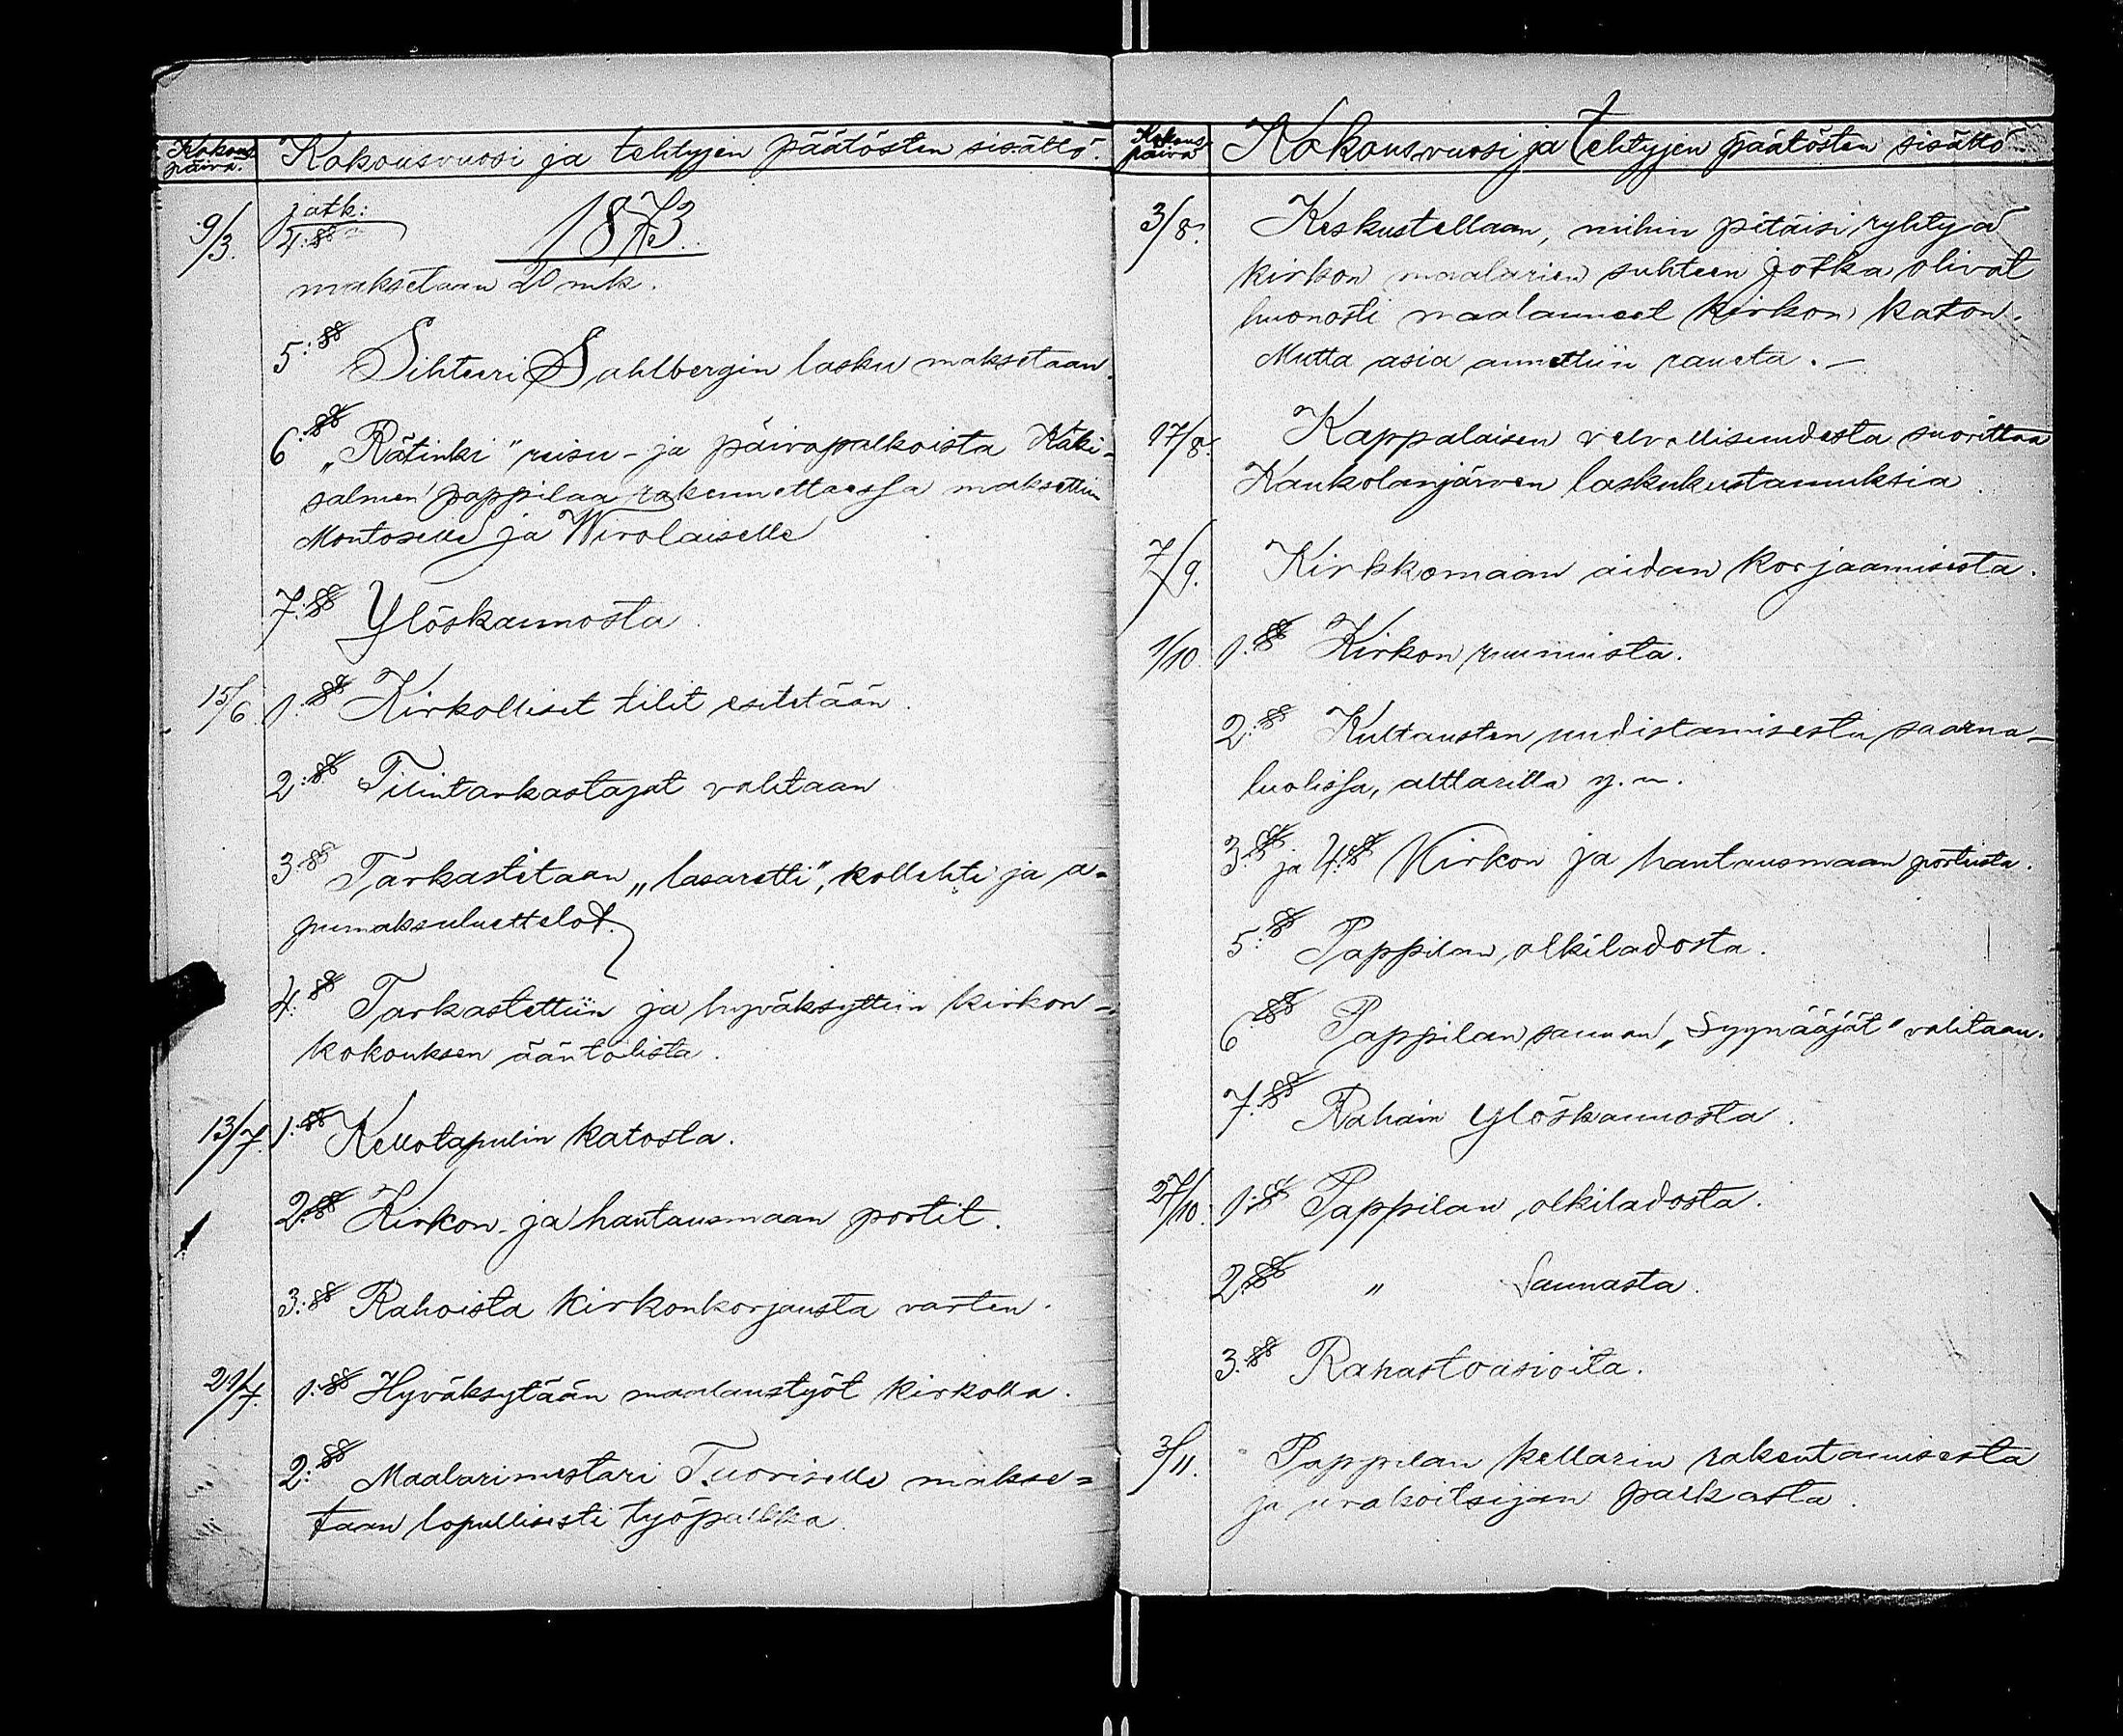 Kokous-
päivä.
Kokousvuosi ja tehtyjen päätösten sisältö.
9/3.
jatk:
4:§§
1873
maksetaan 20 mk.
5:§§ Sihteeri Sahlbergin lasku maksetaan.
6:§§ „Rätinki" reisu- ja päiväpalkoista Käki-
salmen pappilaa rakennettaessa maksettiin
Montoselle ja Wirolaiselle
7:§§ Ylöskannosta.
15/6. 1:§§ Kirkolliset tilit esitetään.
2:§§ Tilintarkastajat valitaan
3:§§ Tarkastetaan „lasaretti", kollehti ja a-
pumaksuluettelot.
4:§§ Tarkastettiin ja hyväksyttiin kirkon-
kokouksen ääntölista.
13/7. 1:§§ Kellotapulin katosta.
2:§§ Kirkon- ja hautausmaan portit.
3:§§ Rahoista kirkonkorjausta varten.
21/7. 1:§§ Hyväksytään maalaustyöt kirkolla.
2:§§ Maalarimestari Tuoriselle makse=
taan lopullisesti työpalkka
Kokous-
päivä
Kokousvuosi ja tehtyjen päätösten sisältö
3/8. Keskustellaan, mihin pitäisi ryhtyä
kirkon maalarien suhteen jotka olivat
huonosti maalanneet kirkon katon.
Mutta asia annettiin raueta. —
17/8. Kappalaisen velvollisuudesta suorittaa
Kaukolanjärven laskukustannuksia.
7/9. Kirkkomaan aidan korjaamisesta.
1/10. 1:§§ Kirkon ruumiista.
2:§§ Kultausten uudistamisesta saarna-
tuolissa, alttarilla y.m.
3:§§ ja 4:§§ Kirkon ja hautausmaan portista.
5:§§ Pappilan olkiladosta.
6:§§ Pappilan saunan „Syynääjät" valitaan.
7:§§ Rahain ylöskannosta.
27/10. 1:§§ Pappilan olkiladosta.
2:§§ " Saunasta.
3:§§ Rahastoasioita.
3/11. Pappilan kellarin rakentamisesta
ja urakoitsijan palkasta.